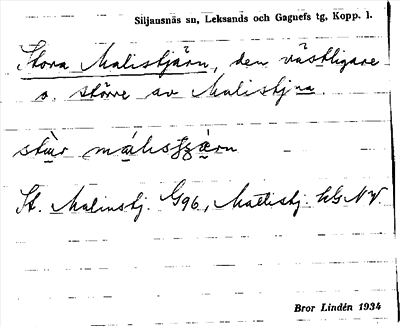 Siljansnäs sn, Leksands och Gagnefs tg, Kopp. l.
Stora Malistjärn, den västligare
o. större av Malistj:na.
St. Malinstj. G96, Mattistj. hG NV.
Bror Lindén 1934